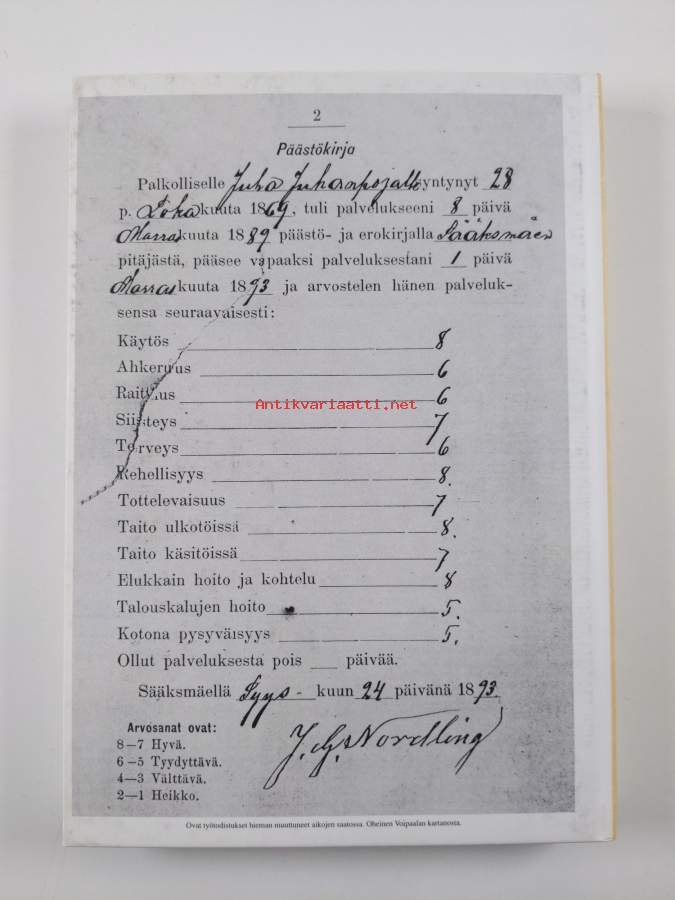 2
Päästökirja
Palkolliselle Juha Juhanpojalle syntynyt 28
p. Lokakuuta 1869, tuli palvelukseeni 8 päivä
Marraskuuta 1889 päästö- ja erokirjalla Sääksmäen
pitäjästä, pääsee vapaaksi palveluksestani 1 päivä
Marraskuuta 1893 ja arvostelen hänen palveluk-
sensa seuraavaisesti:
Käytös 8
Ahkeruus 6
Raittius 6
Siisteys 7
Terveys 6
Rehellisyys 8.
Tottelevaisuus 7
Taito ulkotöissä 8.
Taito käsitöissä 7
Elukkain hoito ja kohtelu 8
Talouskalujen hoito 5.
Kotona pysyväisyys 5.
Ollut palveluksesta pois ___ päivää.
Sääksmäellä Syys-kuun 24 päivänä 1893
Arvosanat ovat:
8—7 Hyvä.
6—5 Tyydyttävä.
4—3 Välttävä.
2—1 Heikko.
J. G. Nordling
Ovat työtodistukset hieman muuttuneet aikojen saatossa. Oheinen Voipaalan kartanosta.
Antikvariaatti.net